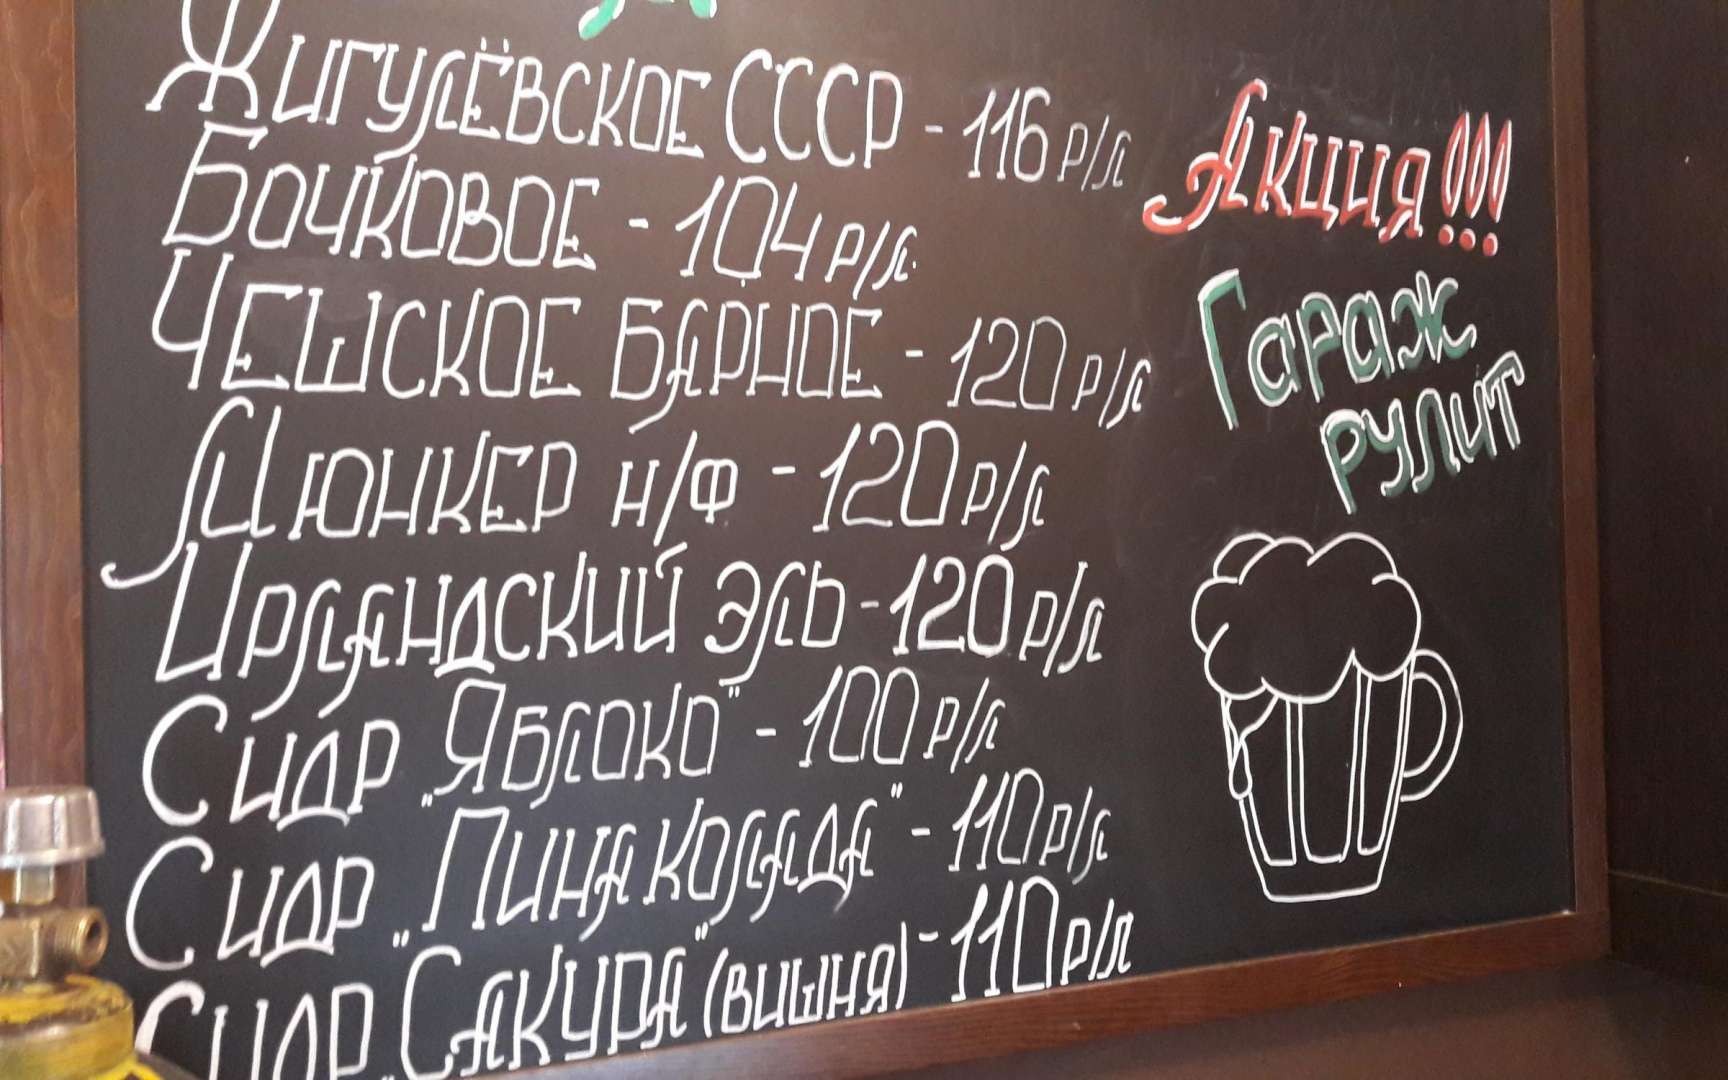 Жигулёвское СССР - 116 р/л
Бочковое - 104 р/л.
Чешское барное - 120 р/л
Дюнкер н/ф - 120 р/л
Ирландский эль - 120 р/л
Сидр „Яблоко" - 100 р/л
Сидр „Пина колада" - 110 р/л
Сидр „Сакура" (вишня) - 110 р/л
Акция!!!
Гараж
рулит